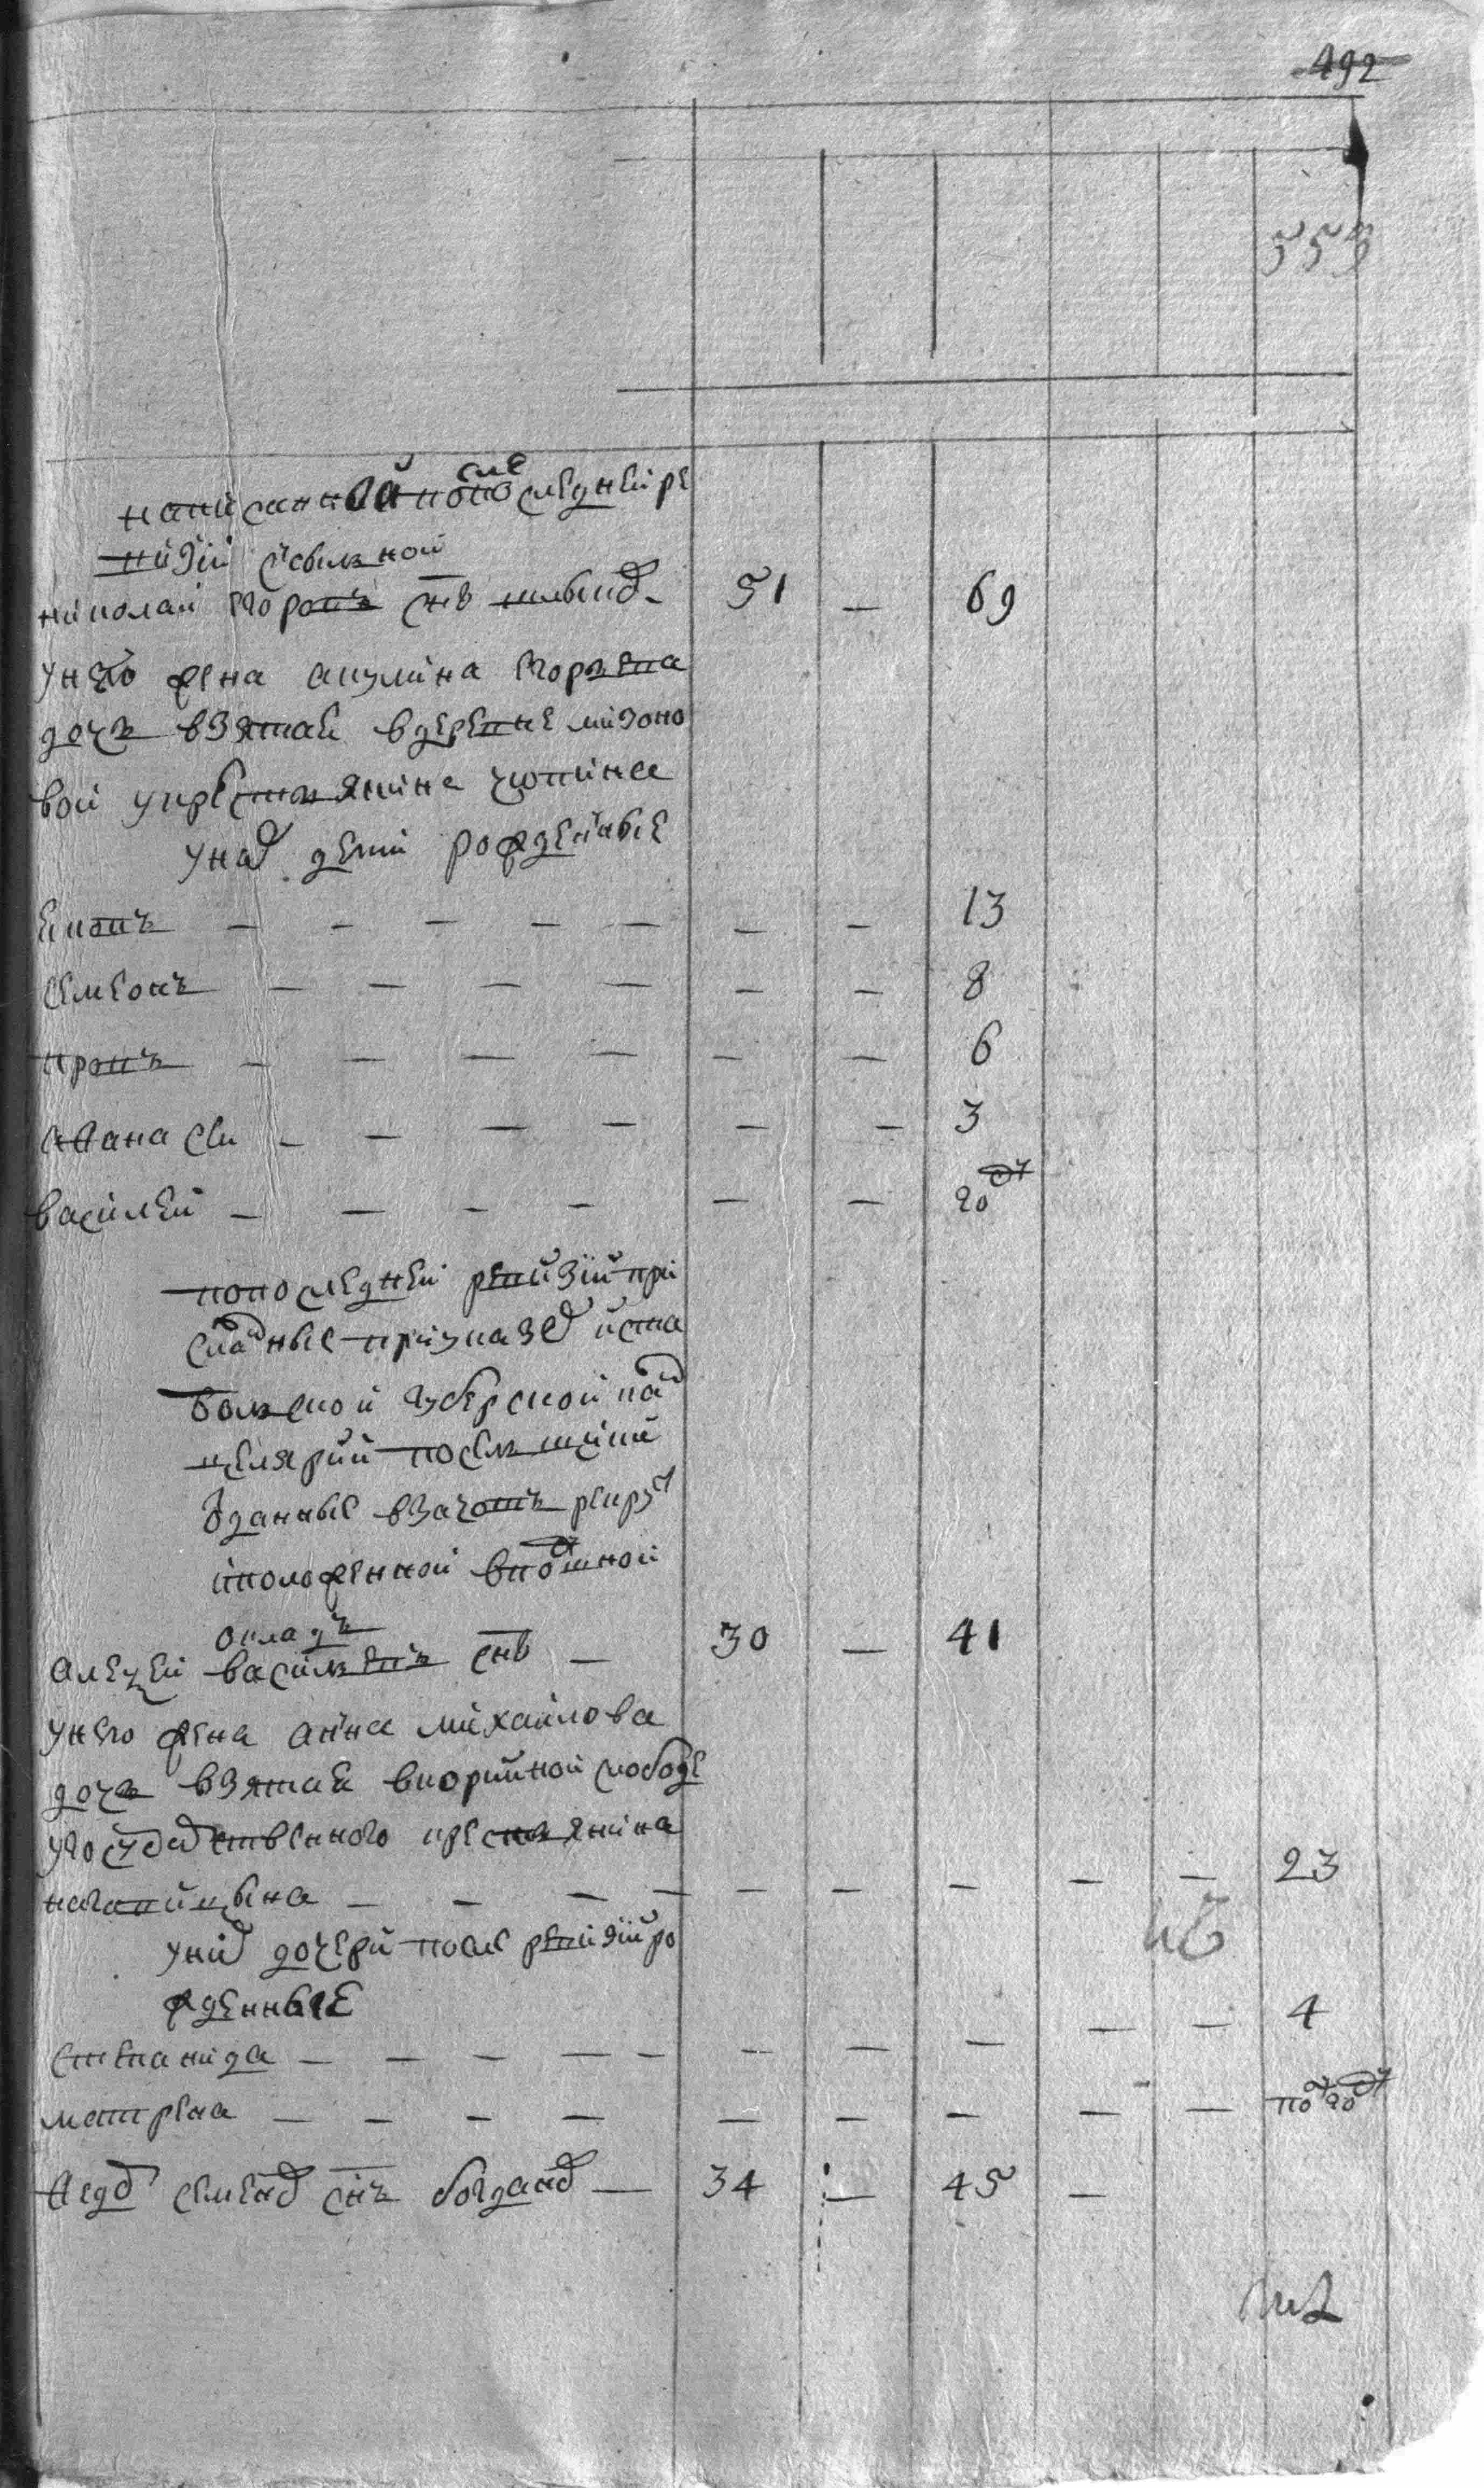 492
559
написанный по после последней ре
визии ссыльной
николай егоровъ снъ шлыков 51 — 69
у него жена акулина егорьева
дочь взятая в деревне мизоно
вой у крестьянина чюпина
у них дети рожденные
— — — — — — — 13
семеонъ — — — — — — 8
— — — — — — 6
афанасеи — — — — — — 3
василеи — — — — — — 20
по последней ревизии при
сланные при указе ис та
больской губернской кан
целярии посельщики
отданные в зачот рекрут
и положенной в подушной
окладъ
алексеи васильевъ снъ — 30 — 41
у него жена анна михайлова
дочь взятая в слободе
у государственного крестьянина
— — — — — — — — — 23
у них дочери после ревизии ро
жденные
степанида — — — — — — — — — — 4
матрена — — — — — — — — — по 20
федор семенов снъ богданов — 34 — 45 —